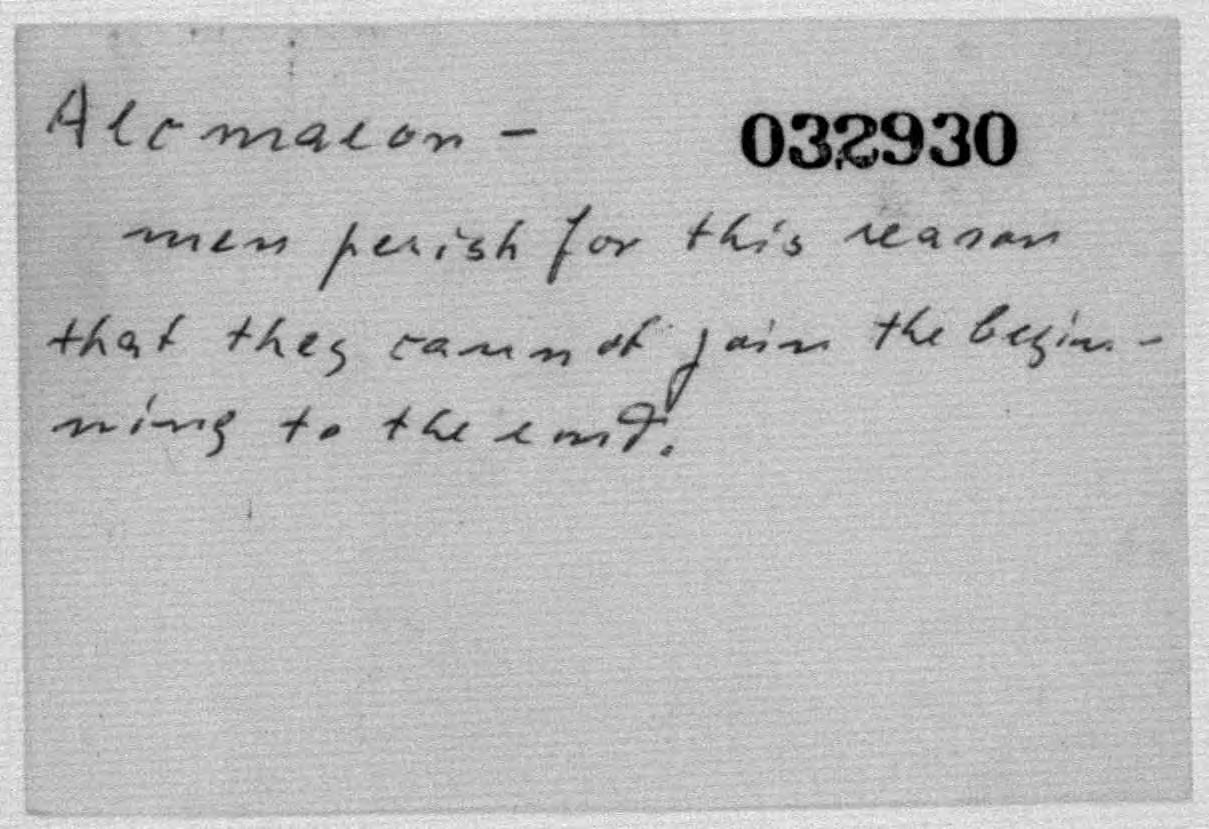 Alcmaeon - 032930
men perish for this reason
that they cannot join the begin-
ning to the end.